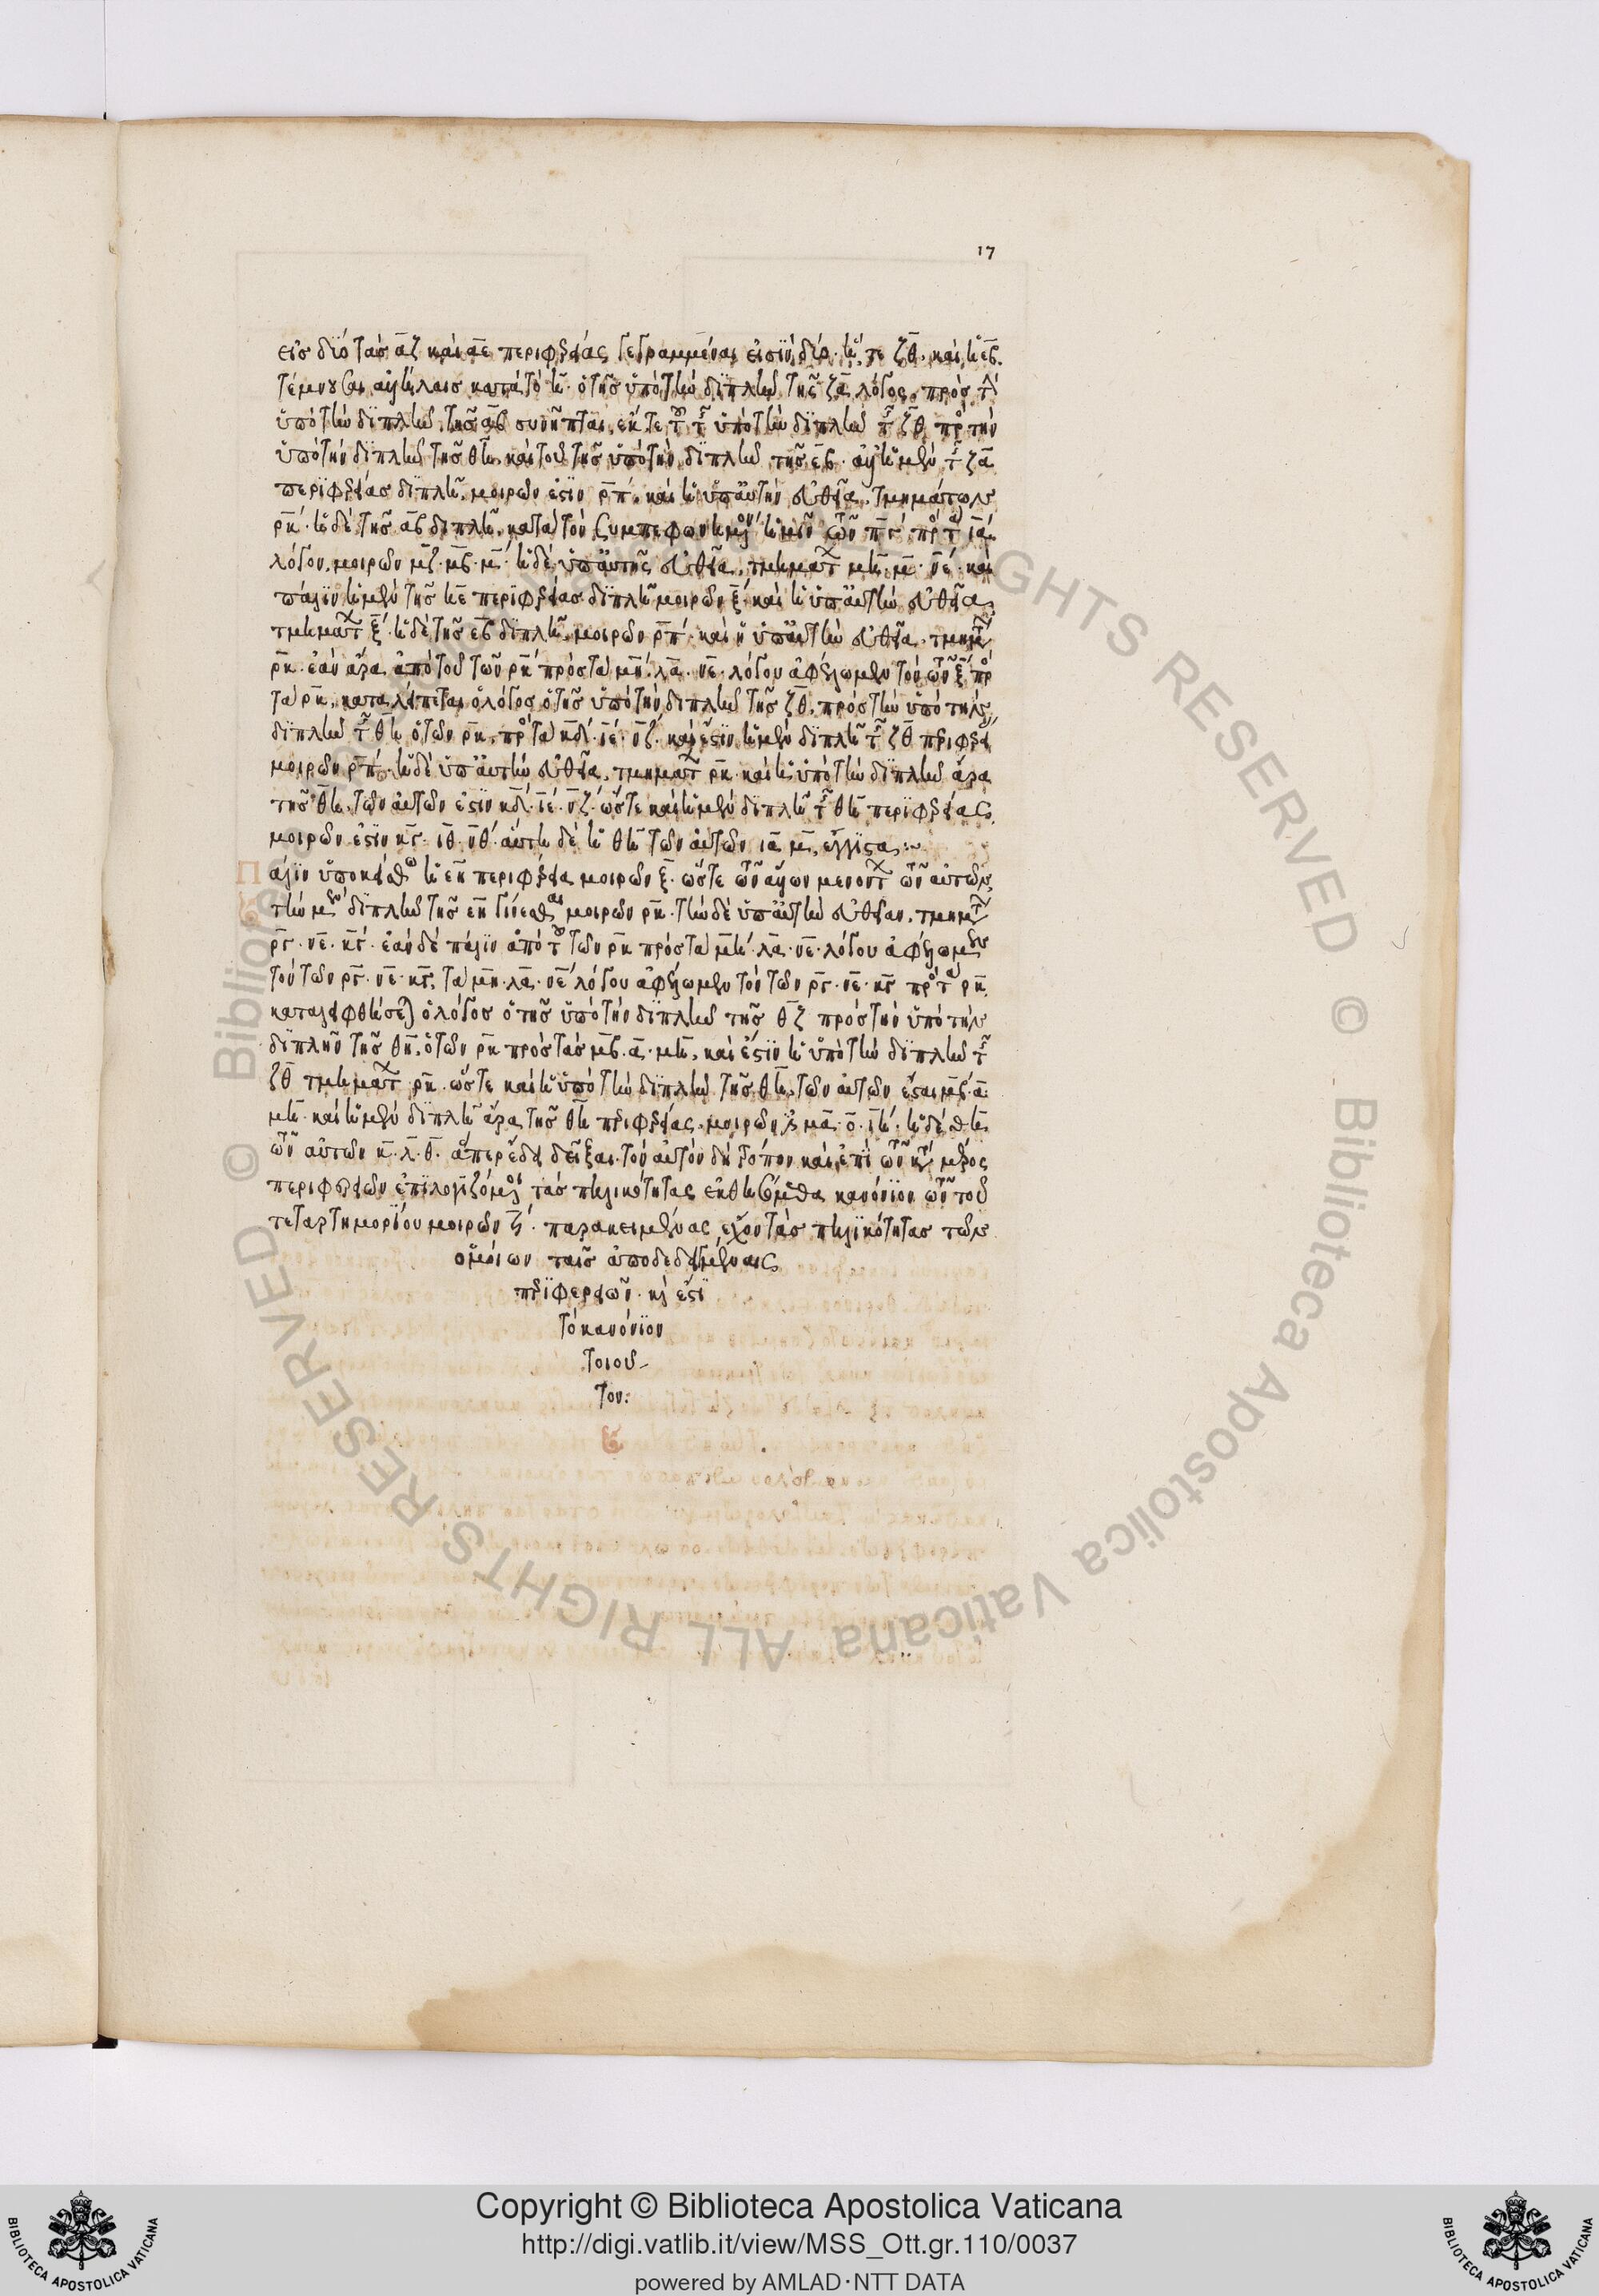 17
εἰς δύο τὰς α̅ζ̅ καὶ α̅ε̅ περιφερείας γεγραμμέναι εἰσὶν δύο. ἥ τε ζ̅θ̅. καὶ ἡ ε̅β̅.
τέμνουσαι ἀλλήλας κατὰ τὸ η̅. ὁ τῆς ὑπὸ τὴν διπλῆν τῆς ζ̅α̅ λόγος. πρὸς τὴν
ὑπὸ τὴν διπλῆν τῆς α̅β̅ συνῆπται. ἔκ τε τοῦ τῆς ὑπὸ τὴν διπλῆν τῆς ζ̅θ̅ πρὸς τὴν
ὑπὸ τὴν διπλῆν τῆς θ̅η̅. καὶ τοῦ τῆς ὑπὸ τὴν διπλῆν τῆς ε̅β̅. ἀλλ' ἡ μὲν τῆς ζ̅α̅
περιφερείας διπλῆ. μοιρῶν ἐστὶν ρ̅π̅. καὶ ἡ ὑπ' αὐτὴν εὐθεῖα. τμημάτων
ρ̅κ̅. ἡ δὲ τῆς α̅β̅ διπλῆ. κατὰ τὸν συμπεφωνημένον ἡμῖν τῶν π̅γ̅ πρὸς τὰ ι̅α̅
λόγον. μοιρῶν μ̅ζ̅. μ̅β̅. μ̅. ἡ δὲ ὑπ' αὐτῆς εὐθεῖα. τμημάτων μ̅η̅. λ̅α̅. ν̅ε̅. καὶ
πάλιν ἡ μὲν τῆς η̅ε̅ περιφερείας διπλῆ μοιρῶν ξ̅. καὶ ἡ ὑπ' αὐτὴν εὐθεῖα.
τμημάτων ξ̅. ἡ δὲ τῆς ε̅β̅ διπλῆ. μοιρῶν ρ̅π̅. καὶ ἡ ὑπ' αὐτὴν εὐθεῖα. τμημάτων
ρ̅κ̅. ἐὰν ἄρα ἀπὸ τοῦ τῶν ρ̅κ̅ πρὸς τὰ μ̅η̅. λ̅α̅. ν̅ε̅. λόγου ἀφέλωμεν τὸν τῶν ξ̅ πρὸς
τὰ ρ̅κ̅. καταλείπεται ὁ λόγος ὁ τῆς ὑπὸ τὴν διπλῆν τῆς ζ̅θ̅. πρὸς τὴν ὑπὸ τὴν
διπλῆν τῆς θ̅η̅ ὁ τῶν ρ̅κ̅. πρὸς τὰ κ̅δ̅. ι̅ε̅. ν̅ζ̅. καὶ ἔστιν ἡ μὲν διπλῆ τῆς ζ̅θ̅ περιφερείας
μοιρῶν ρ̅π̅. ἡ δὲ ὑπ' αὐτὴν εὐθεῖα. τμημάτων ρ̅κ̅. καὶ ἡ ὑπὸ τὴν διπλῆν ἄρα
τῆς θ̅η̅. τῶν αὐτῶν ἐστὶν κ̅δ̅. ι̅ε̅. ν̅ζ̅. ὥστε καὶ ἡ μὲν διπλῆ τῆς θ̅η̅ περιφερείας.
μοιρῶν ἐστὶν κ̅γ̅. ι̅θ̅. ν̅θ̅. αὐτὴ δὲ ἡ θ̅η̅ τῶν αὐτῶν ι̅α̅ μ̅. ἔγγιστα:~
Πάλιν ὑποκείσθω ἡ ε̅η̅ περιφέρεια μοιρῶν ξ̅. ὥστε τῶν ἄλλων μενόντων τῶν αὐτῶν.
τὴν μὲν διπλῆν τῆς ε̅η̅ γίνεσθαι μοιρῶν ρ̅κ̅. τὴν δὲ ὑπ' αὐτὴν εὐθεῖαν. τμημάτων
ρ̅γ̅. ν̅ε̅. κ̅γ̅. ἐὰν δὲ πάλιν ἀπὸ τοῦ τῶν ρ̅κ̅ πρὸς τὰ μ̅η̅. λ̅α̅. ν̅ε̅. λόγου ἀφέλωμεν
τὸν τῶν ρ̅γ̅. ν̅ε̅. κ̅γ̅. τὰ μ̅η̅. λ̅α̅. ν̅ε̅ λόγου ἀφέλωμεν τὸν τῶν ρ̅γ̅. ν̅ε̅. κ̅γ̅ πρὸς τὰ ρ̅κ̅.
καταλειφθήσεται ὁ λόγος ὁ τῆς ὑπὸ τὴν διπλῆν τῆς θ̅ζ̅ πρὸς τὴν ὑπὸ τὴν
διπλῆν τῆς θ̅η̅. ὁ τῶν ρ̅κ̅ πρὸς τὰς μ̅β̅. α̅. μ̅η̅. καὶ ἔστιν ἡ ὑπὸ τὴν διπλῆν τῆς
ζ̅θ̅ τμημάτων ρ̅κ̅. ὥστε καὶ ἡ ὑπὸ τὴν διπλῆν τῆς θ̅η̅. τῶν αὐτῶν ἔσται μ̅β̅. α̅.
μ̅η̅. καὶ ἡ μὲν διπλῆ ἄρα τῆς θ̅η̅ περιφερείας. μοιρῶν μ̅α̅. ο̅. ι̅η̅. ἡ δὲ θ̅η̅
τῶν αὐτῶν κ̅. λ̅. θ̅. ἅπερ ἔδει δεῖξαι. τὸν αὐτὸν δὴ τρόπον καὶ ἐπὶ τῶν κατὰ μέρος
περιφερειῶν ἐπιλογιζόμενοι τὰς πηλικότητας ἐκθησόμεθα κανόνιον τῶν τοῦ
τεταρτημορίου μοιρῶν ϟ̅. παρακειμένας ἔχον τὰς πηλικότητας τῶν
ὁμοίων ταῖς ἀποδεδειγμέναις
περιφερειῶν. καὶ ἔστι
τὸ κανόνιον
τοιοῦ-
τον:
Copyright © Biblioteca Apostolica Vaticana
http://digi.vatlib.it/view/MSS_Ott.gr.110/0037
powered by AMLAD·NTT DATA
BIBLIOTECA APOSTOLICA VATICANA
BIBLIOTECA APOSTOLICA VATICANA
© Biblioteca Apostolica Vaticana ALL RIGHTS RESERVED